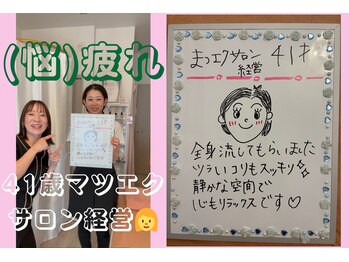 (悩)疲れ
41歳マツエク
サロン経営👩
まつエクサロン
経営
41才
全身流してもらいました
ツライコリもスッキリ✨
静かな空間で
心もリラックスです♡